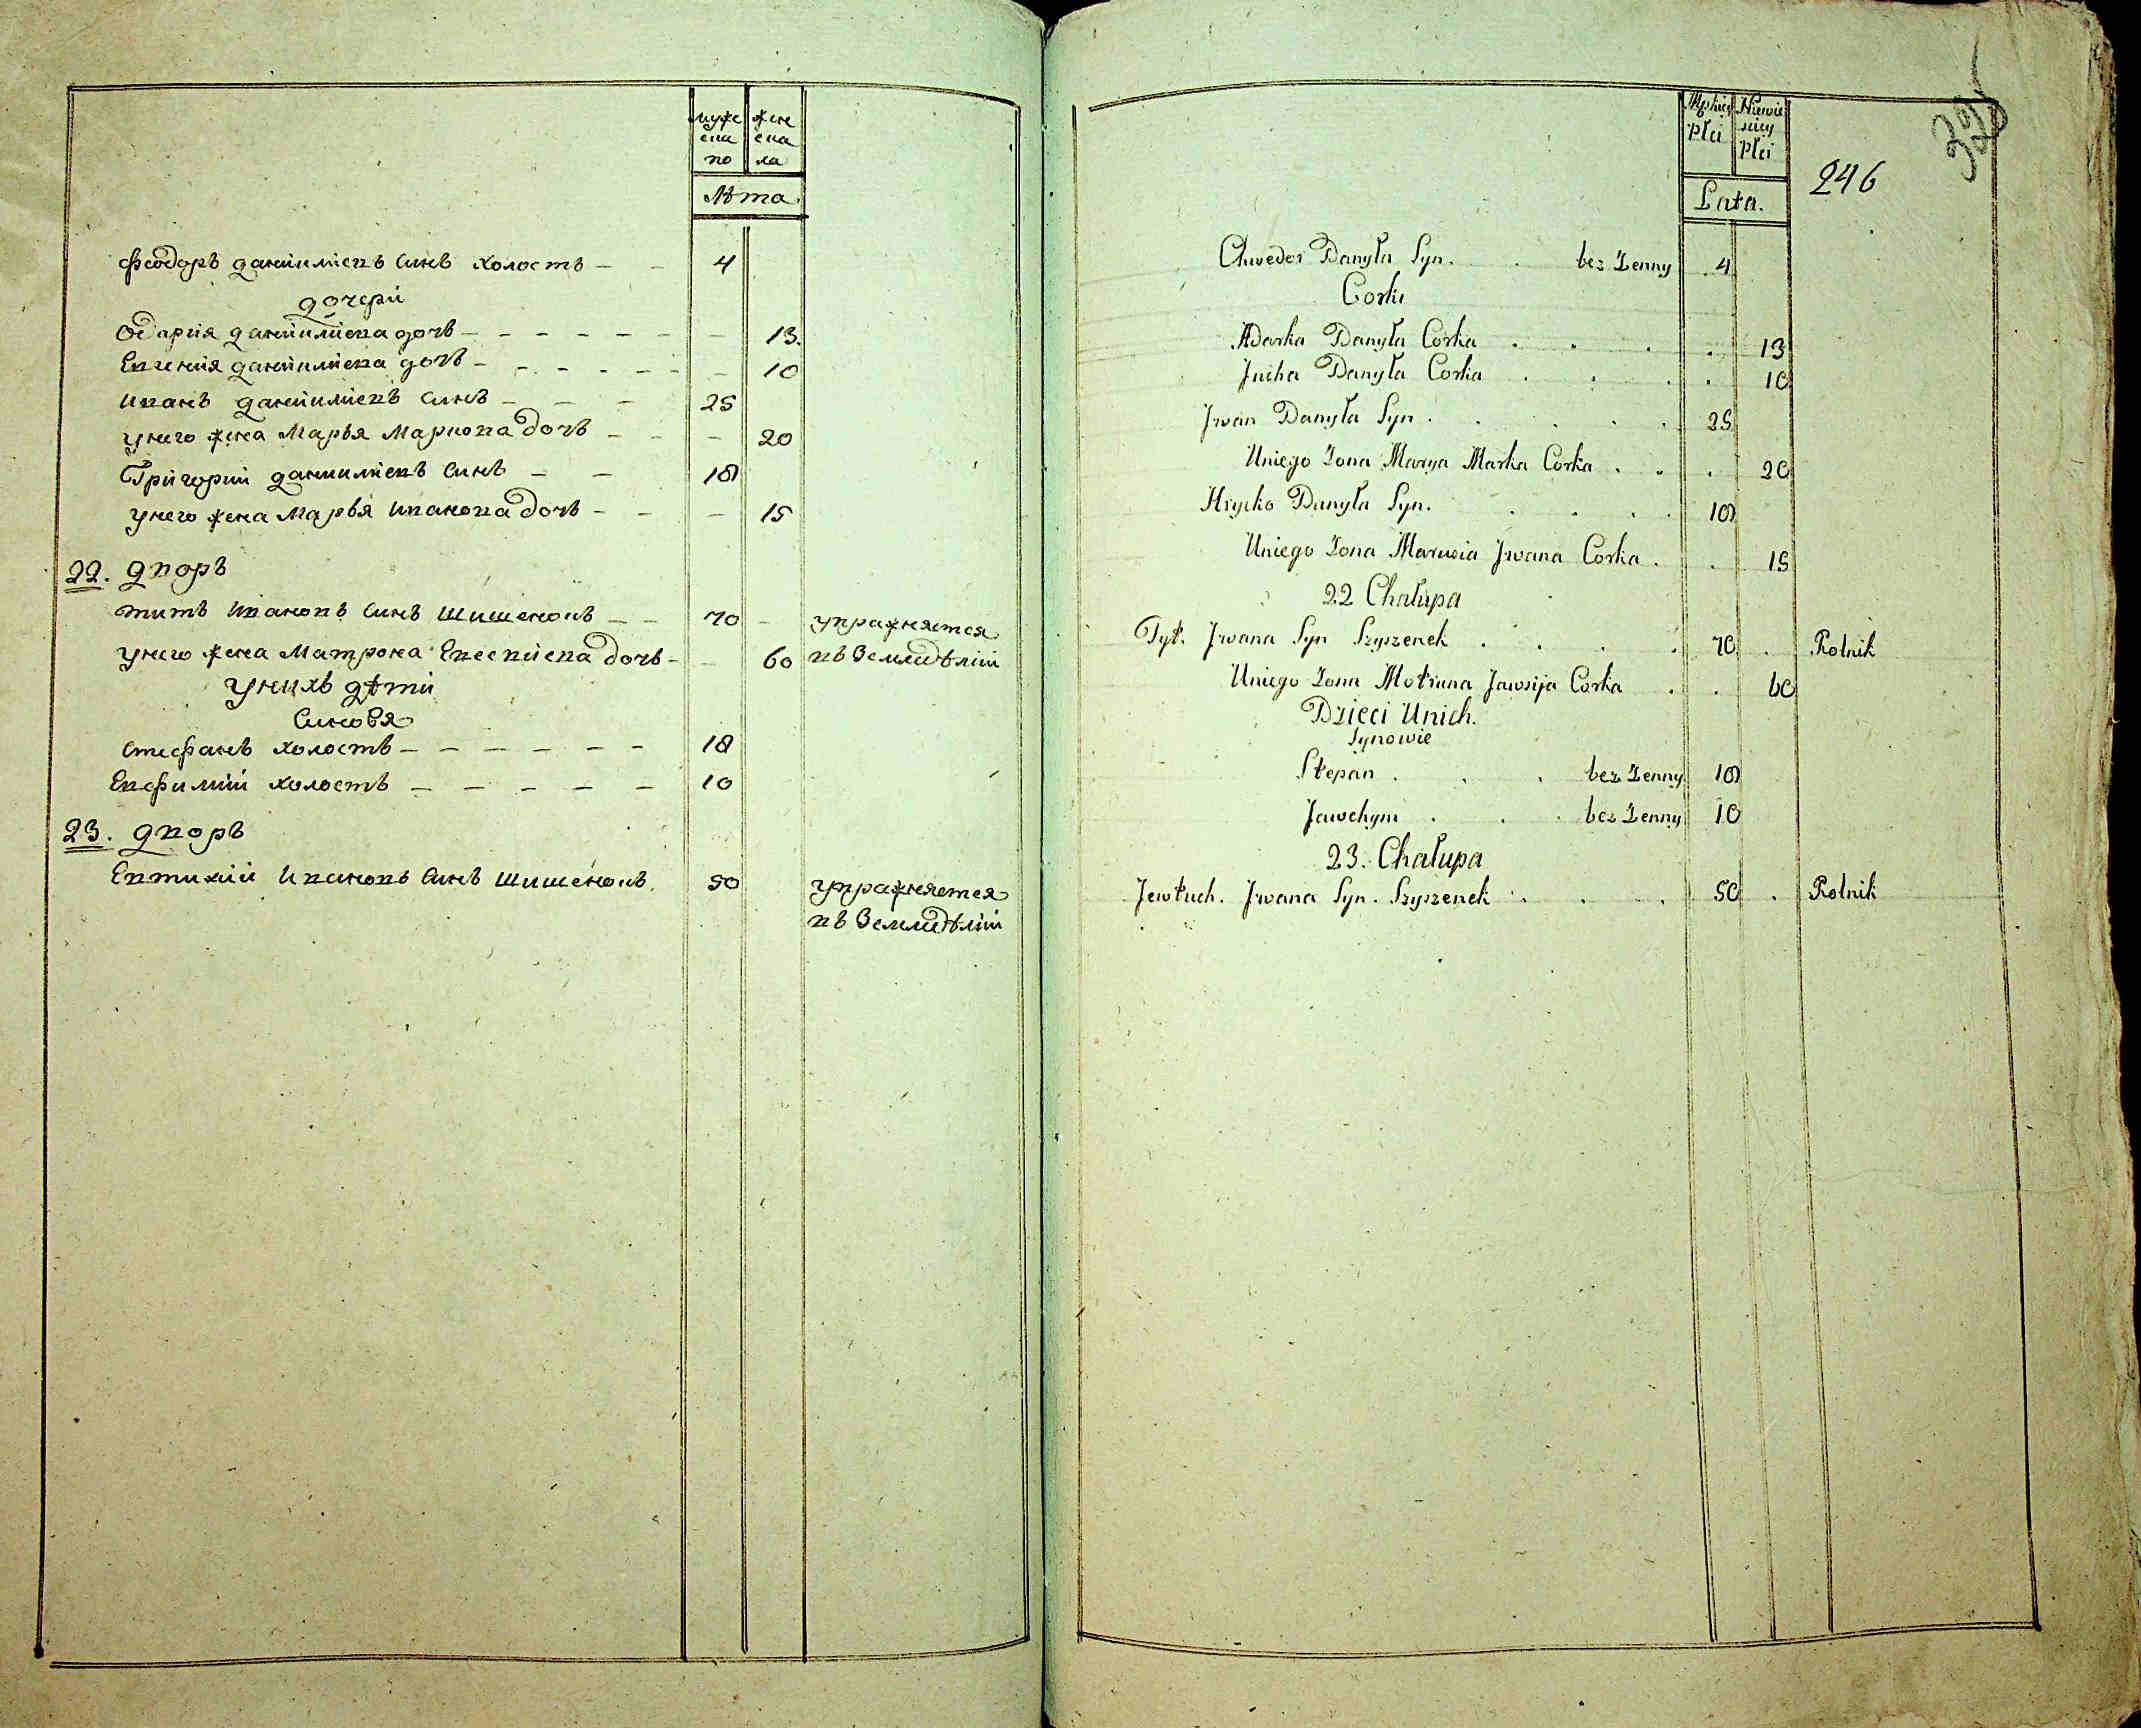 муже ска по
жен ска ла
Лѣта
Феодоръ данииліевъ синъ холостъ 4
дочери
Одария данииліева дочь 13
Евгения данииліева дочь 10
Иванъ данииліевъ синъ 25
унего жена Марья Маркова дочь 20
Григорий данииліевъ синъ 18
унего жена Марья Иванова дочь 15
22. дворъ
титъ Ивановъ синъ Шишенокъ 70 упражняется
унего жена Матрона Евсевиева дочь 60 въ Земледѣлии
унихъ дѣти
Синовя
Стефанъ холостъ 18
Евфимий холостъ 10
23. дворъ
Евтихий Ивановъ синъ Шишенокъ 50 упражняется
въ Земледѣлии
325
246
Męskiey Płci
Niewiesciey Płci
Lata.
Chwedor Danyła Syn. bez Zenny 4
Corki
Adarka Danyła Corka 13
Jucha Danyła Corka 10
Jwan Danyła Syn. 25
Uniego Zona Marya Marka Corka 20
Hrycko Danyła Syn. 18
Uniego Zona Marusia Jwana Corka 15
22 Chałupa
Tyt. Jwana Syn Szyszenek 70 Rolnik
Uniego Zona Motruna Jawsija Corka 60
Dzieci Unich.
Synowie
Stepan bez Zenny 18
Jawchym bez Zenny 10
23. Chałupa
Jewtuch. Jwana Syn. Szyszenek 50 Rolnik